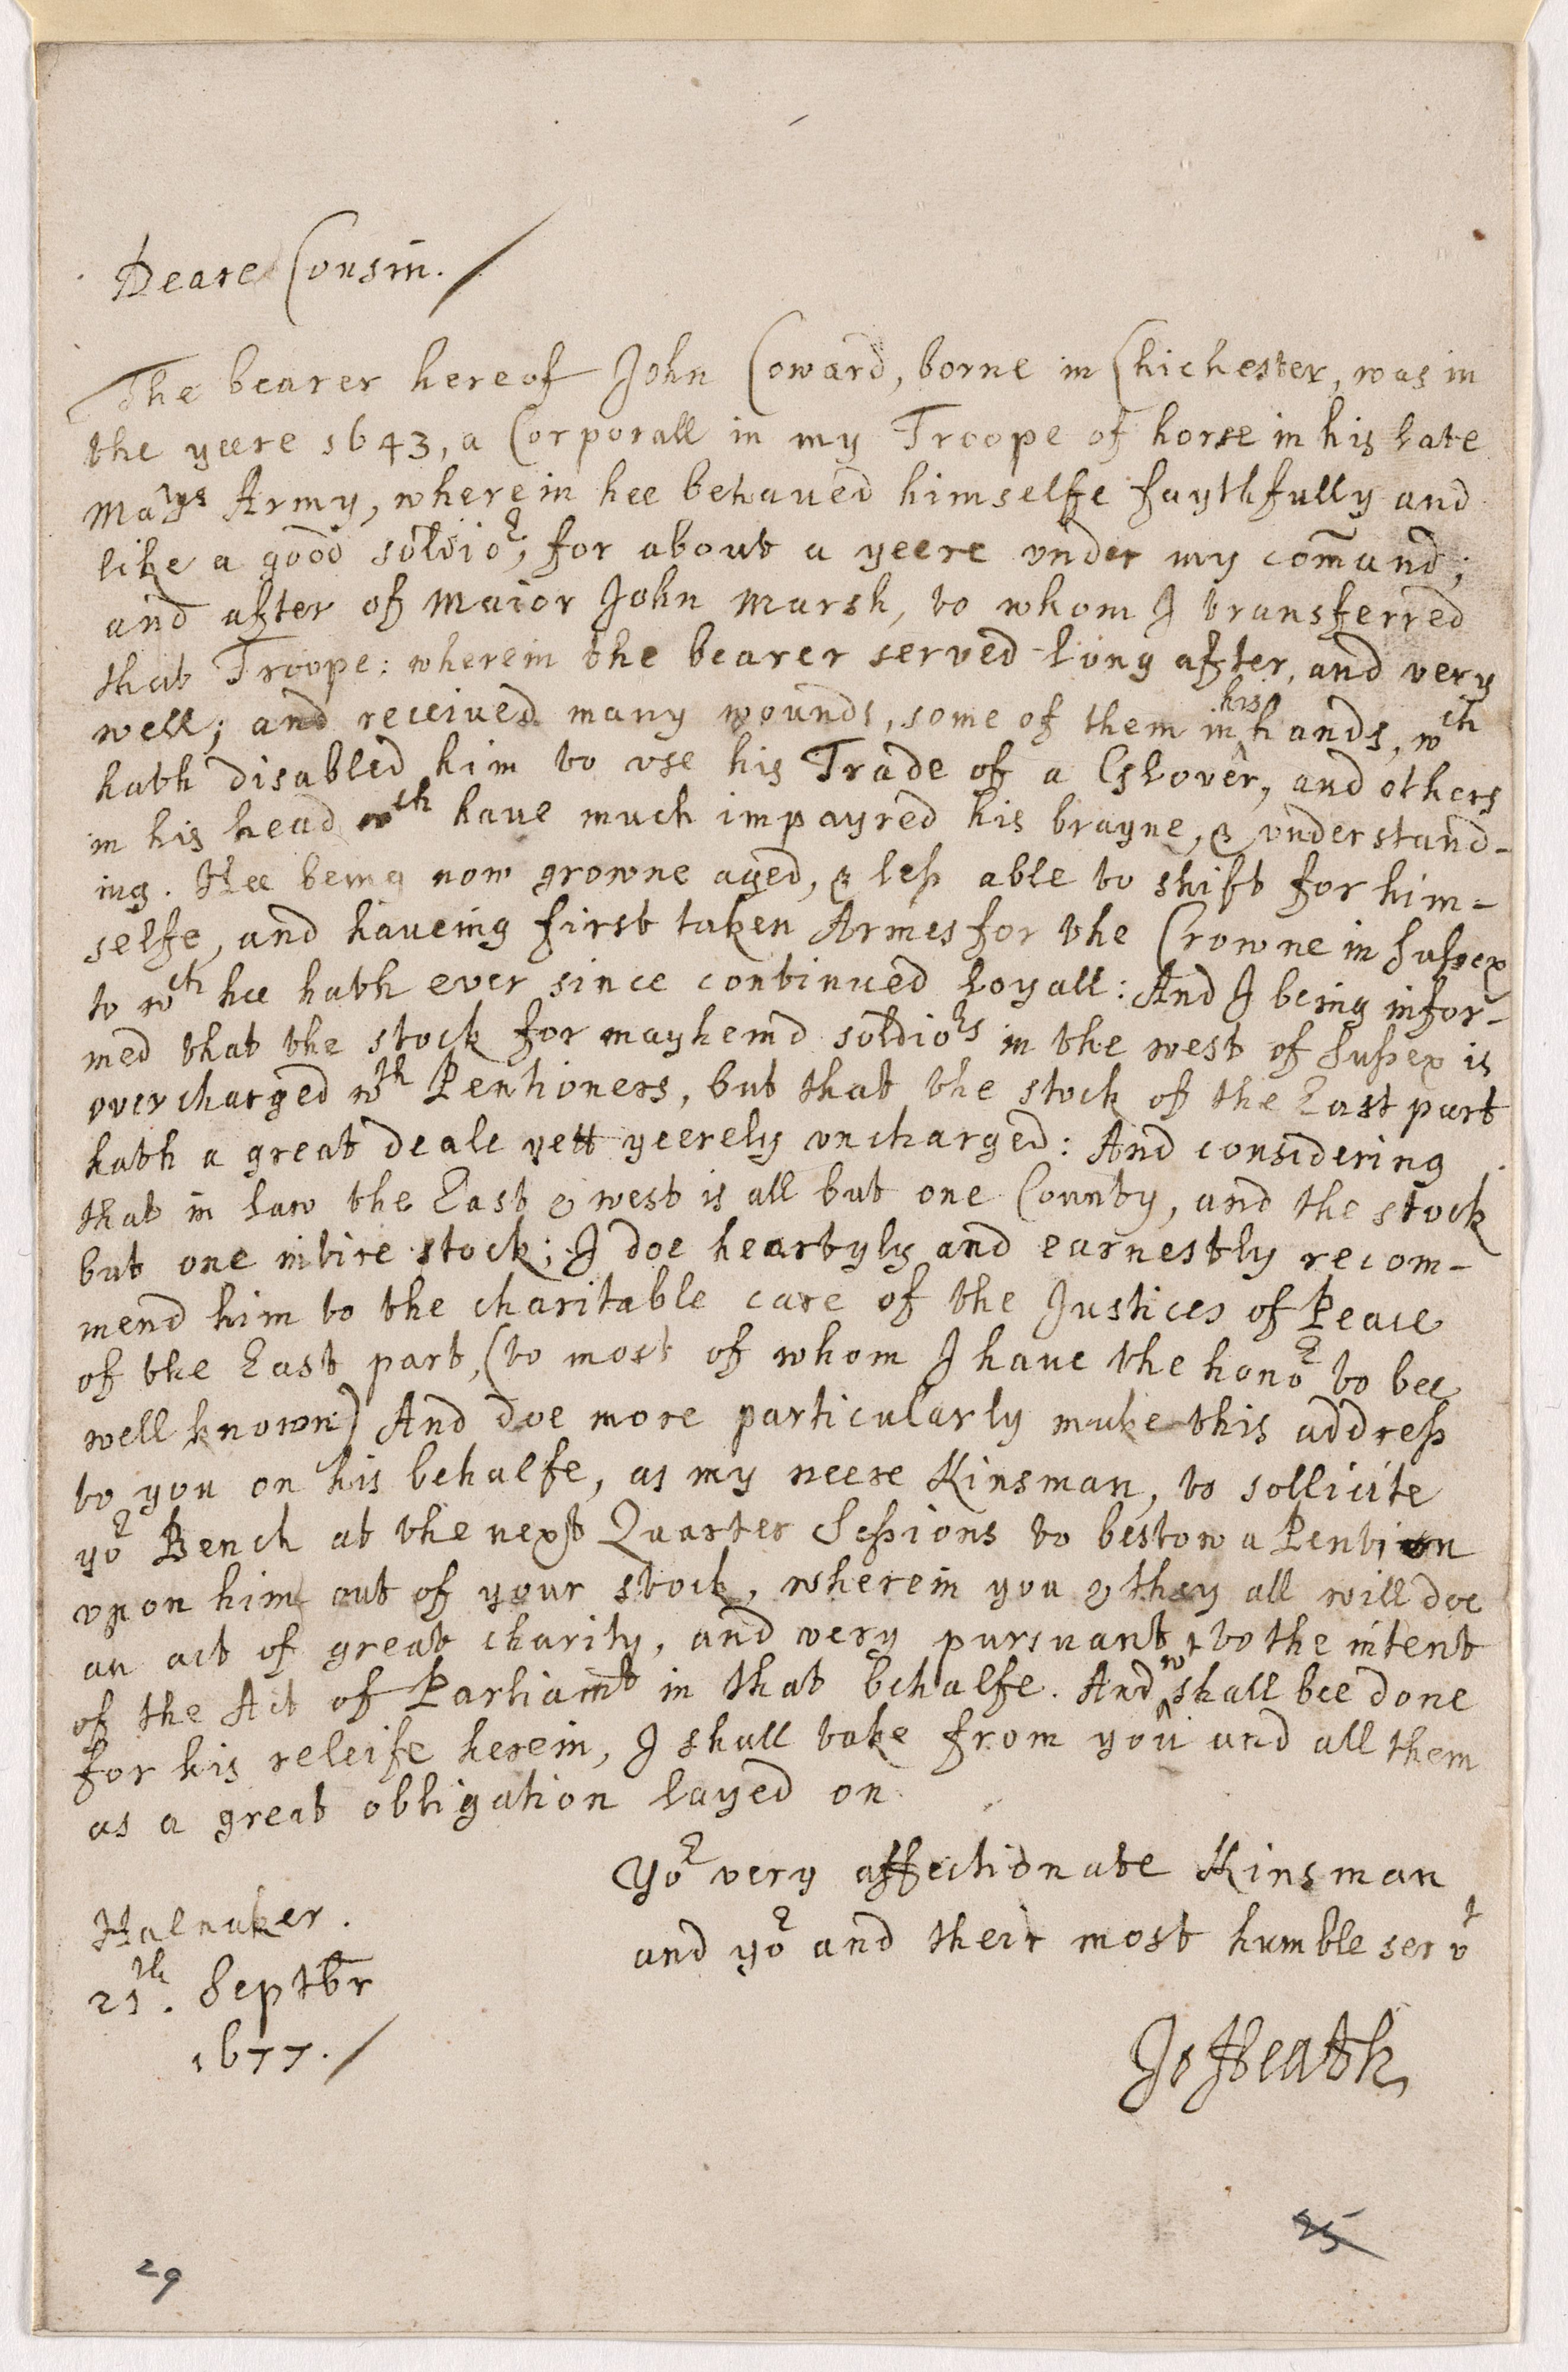 Deare Cousin.
The bearer hereof John Coward, borne in Chichester, was in
the yeere 1643, a Corporall in my Troope of horse in his late
Ma^tys Army, wherein hee behaued himselfe faythfully and
like a good soldio^r, for about a yeere vnder my com̄and;
and after of Maior John Marsh, to whom I transferred
that Troope: wherein the bearer served long after, and very
well; and received many wounds, some of them in ^his hands, w^ch
hath disabled him to vse his Trade of a Glover, and others
in his head w^ch haue much impayred his brayne, & vnderstand-
ing. Hee being now growne aged, & leſs able to shift for him=
selfe, and haueing first taken Armes for the Crowne in Suſsex
to w^ch hee hath ever since continued loyall: And I being infor-
med that the stock for mayhemd soldio^rs in the west of Suſsex is
overcharged w^th Pentioners, but that the stock of the East part
hath a great deale yett yeerely vncharged: And considering
that in law the East & west is all but one County, and the stock
but one intire stock; I doe heartyly and earnestly recom-
mend him to the charitable care of the Justices of Peace
of the East part, (to most of whom I haue the hono^r to bee
well known) And doe more particularly make this addreſs
to you on his behalfe, as my neere Kinsman, to sollicite
yo^r Bench at the next Quarter Seſsions to bestow a Pention
vpon him out of your stock, wherein you & they all will doe
an act of great charity, and very pursuant to the intent
of the Act of Parliam̄^t in that behalfe. And ^w^t shall bee done
for his releife herein, I shall take from you and all them
as a great obligation layed on
Yo^r very affectionate Kinsman
and yo^r and their most humble serv^t
Jo Heath
Halnaker.
21^th. Septb̄r
1677.
25
29